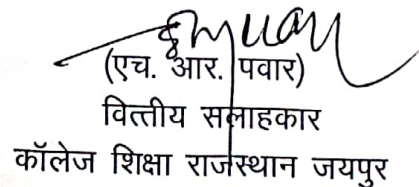 (एच. आर. पवार)
वित्तीय सलाहकार
कॉलेज शिक्षा राजस्थान जयपुर